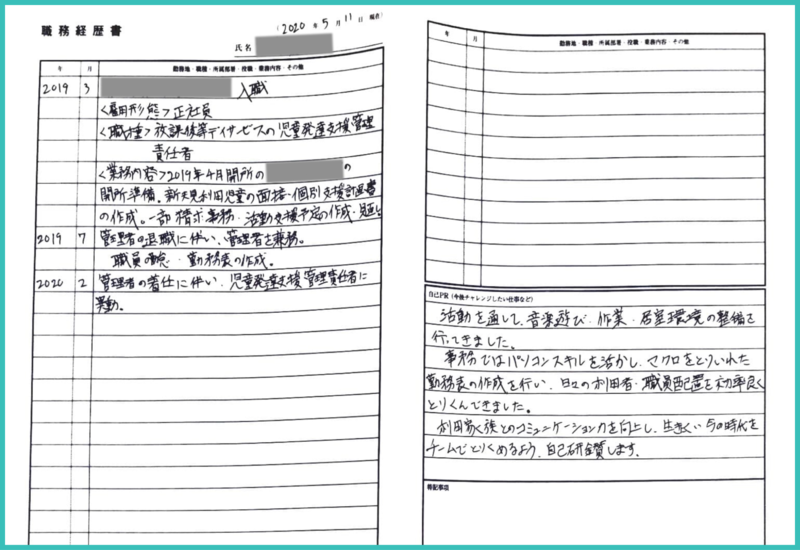 職務経歴書
(2020年 5月 11日 現在)
氏名
年 月 勤務地・職種・所属部署・役職・業務内容・その他
2019 3 入職
<雇用形態>正社員
<職種>放課後等デイサービスの児童発達支援管理
責任者
<業務内容>2019年4月開所の の
開所準備。新規利用児童の面接・個別支援計画書
の作成。一部請求事務・活動支援予定の作成・見直し
2019 7 管理者の退職に伴い、管理者を兼務。
職員の勤怠・勤務表の作成。
2020 2 管理者の着任に伴い、児童発達支援管理責任者に
異動。
年 月 勤務地・職種・所属部署・役職・業務内容・その他
自己PR(今後チャレンジしたい仕事など)
活動を通して、音楽遊び・作業・居室環境の整備を
行ってきました。
事務ではパソコンスキルを活かし、マクロをとりいれた
勤務表の作成を行い、日々の利用者・職員配置を効率良く
とりくんできました。
利用家族とのコミュニケーション力を向上し、生きにくい の時代を
チームでとりくめるよう、自己研鑽します。
特記事項